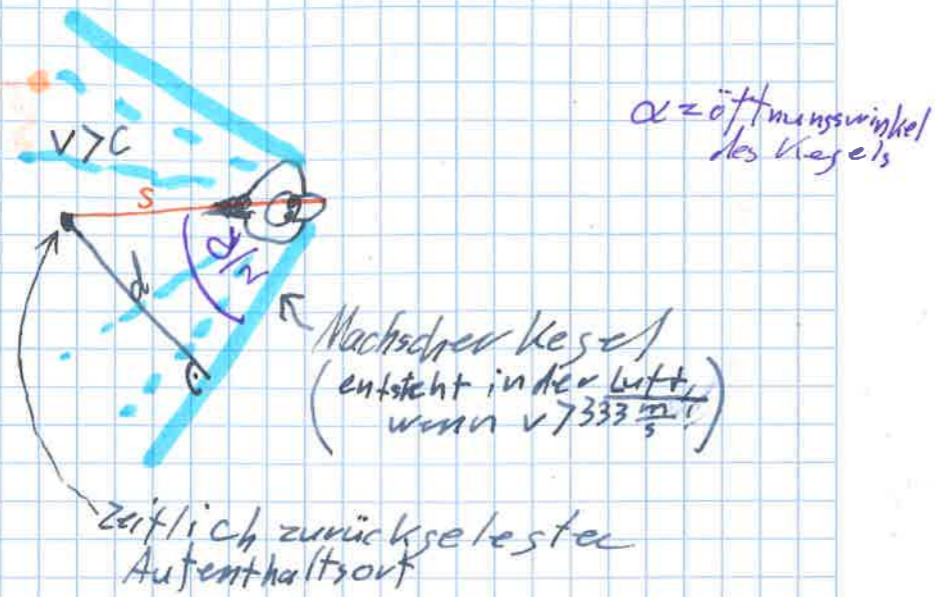 α = öffnungswinkel
des Kegels
v>c
s
α/2
d
Machscher Kegel
(entsteht in der Luft,
wenn v > 333 m/s!)
zeitlich zurückgelegter
Aufenthaltsort